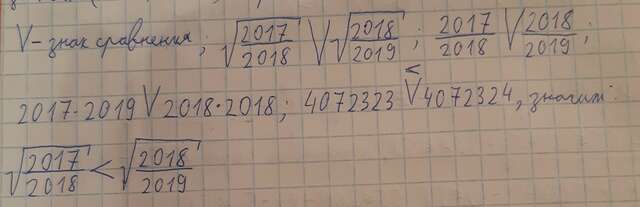 V - знак сравнения; √(2017/2018) V √(2018/2019); 2017/2018 V 2018/2019;
2017·2019 V 2018·2018; 4072323 V < 4072324, значит:
√(2017/2018) < √(2018/2019)